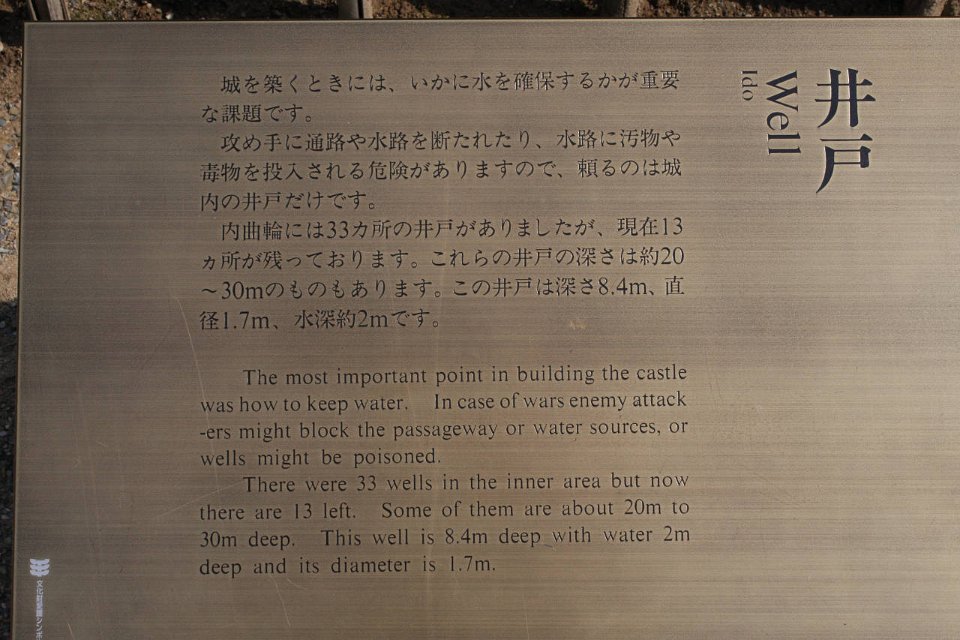 井戸
Well
Ido
城を築くときには、いかに水を確保するかが重要
な課題です。
攻め手に通路や水路を断たれたり、水路に汚物や
毒物を投入される危険がありますので、頼るのは城
内の井戸だけです。
内曲輪には33カ所の井戸がありましたが、現在13
ヵ所が残っております。これらの井戸の深さは約20
～30mのものもあります。この井戸は深さ8.4m、直
径1.7m、水深約2mです。
The most important point in building the castle
was how to keep water. In case of wars enemy attack
-ers might block the passageway or water sources, or
wells might be poisoned.
There were 33 wells in the inner area but now
there are 13 left. Some of them are about 20m to
30m deep. This well is 8.4m deep with water 2m
deep and its diameter is 1.7m.